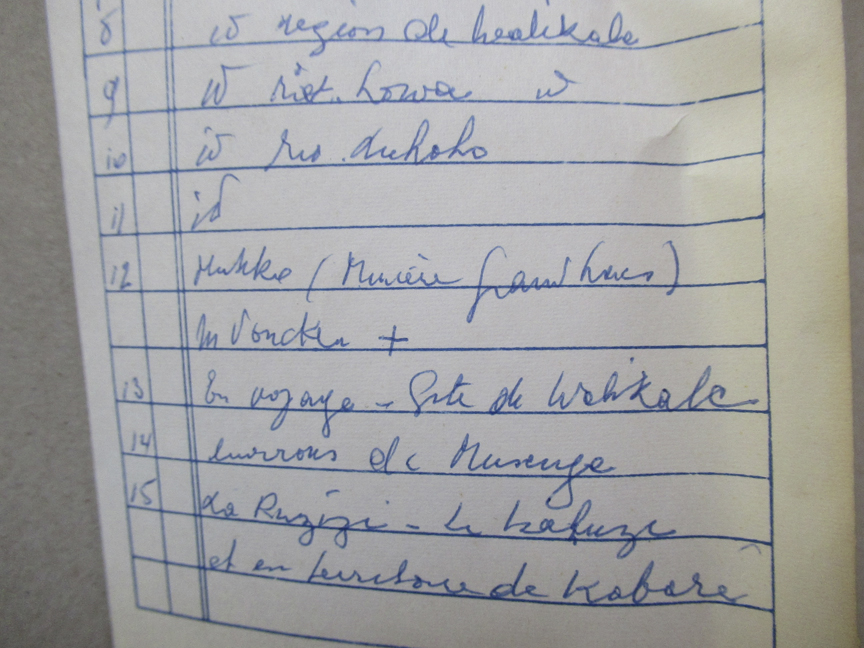 8 id région de Walikale
9 id riv. Lowa id
10 id riv. Luhoho
11 id
12 (Rivière
+
13 En voyage - Gîte de Walikale
14 environs de Musenge
15 La Ruzizi - Le
et en territoire de Kabare